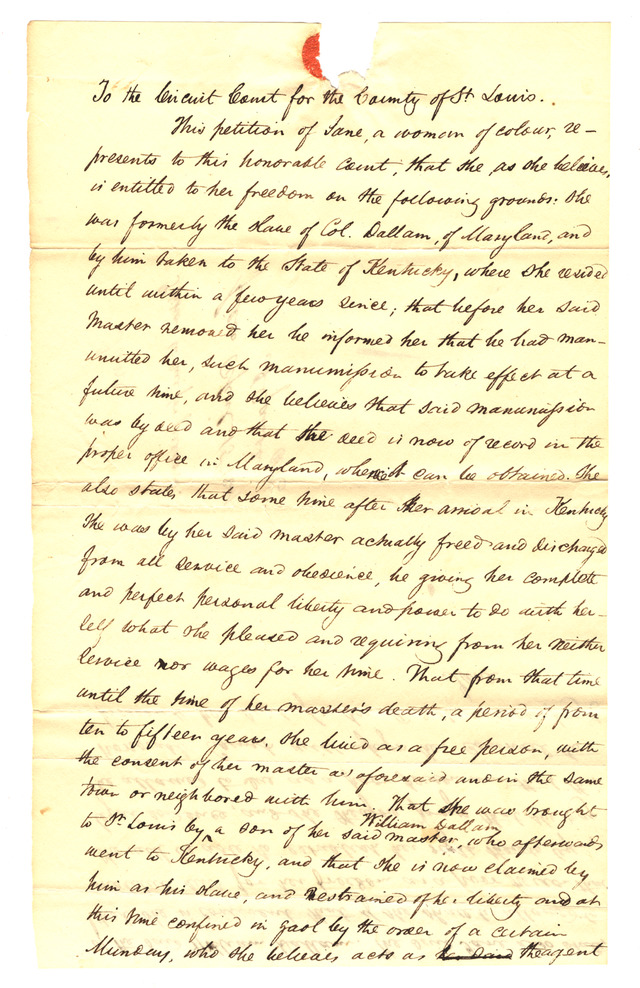 To the Circuit Court for the County of St Louis.
This petition of Jane, a woman of colour, re-
presents to this honorable Court, that she, as she believes,
is entitled to her freedom on the following grounds: She
was formerly the slave of Col. Dallam, of Maryland, and
by him taken to the State of Kentucky, where she resided
until within a few years since; that before her said
Master removed her he informed her that he had man-
umitted her, such manumission to take effect at a
future time, and she believes that said manumission
was by deed and that the deed is now of record in the
proper office in Maryland, where it can be obtained. She
also states that some time after her arrival in Kentucky
She was by her said master actually freed and discharged
from all service and obedience, he giving her complete
and perfect personal liberty and power to do with her-
self what she pleased and requiring from her neither
service nor wages for her time. That from that time
until the time of her master's death, a period of from
ten to fifteen years, she lived as a free person, with
the consent of her master as aforesaid and in the same
town or neighbored with him. That she was brought
William Dallam
to St Louis by a son of her said master, who afterwards
went to Kentucky, and that she is now claimed by
him as his slave, and restrained of her liberty and at
this time confined in gaol by the order of a certain
Munday, who she believes acts as her said the agent